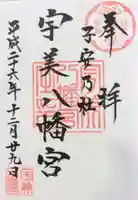 奉拝
子安乃杜
宇美八幡宮
平成二十六年十二月廿九日